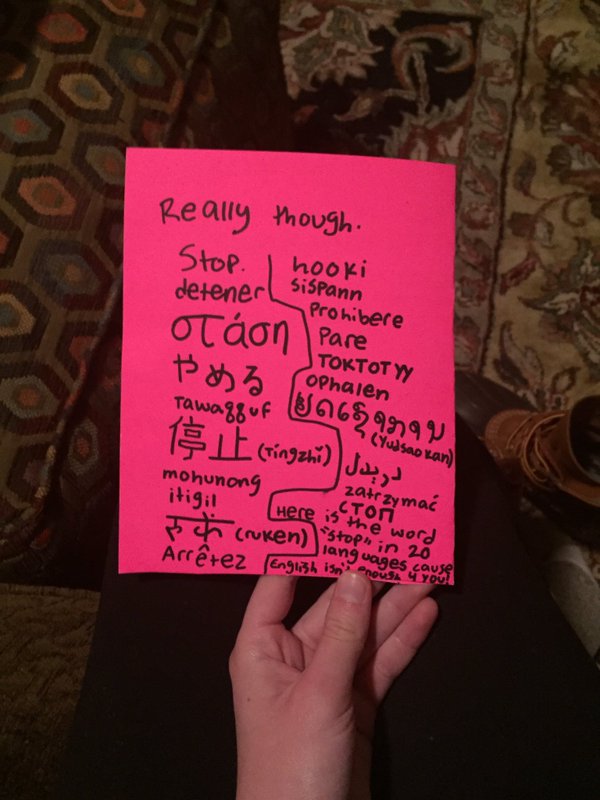 Really though.
Stop.
detener
στάση
やめる
Tawaqquf
停止 (Tíngzhǐ)
mohunong
itigil
(ruken)
Arrêtez
hooki
sispann
Prohibere
Pare
ТОКТОТУУ
Ophalen
(Yudsaokan)
zatrzymać
стоп
Here is the word
"stop" in 20
languages cause
English isn't enough 4 you!